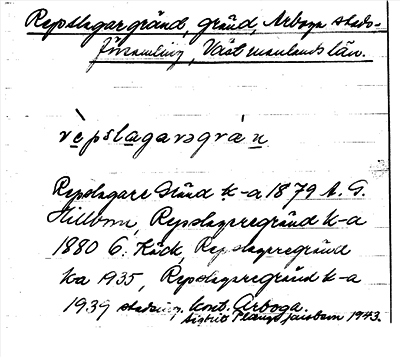 Repslagargränd, gränd, Arboga stads-
församling, Västmanlands län.
rèpslagarəgrán
Repslagare Gränd k-a 1879 A. G.
Hillbom, Repslagaregränd k-a
1880 G. Käck, Repslagaregränd
ka 1935, Repslagaregränd k-a
1939 stadsing. kont. Arboga.
1943.